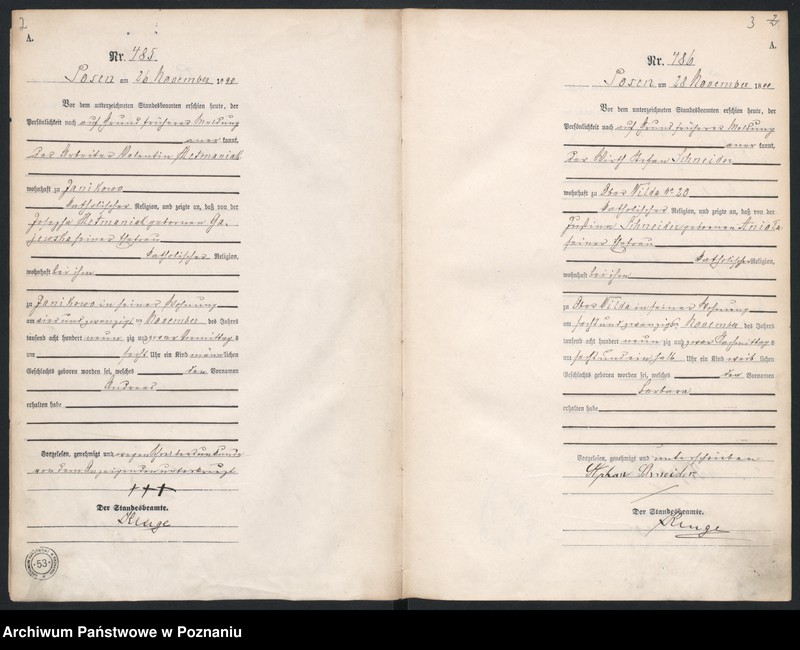 2
A.
Nr. 785.
Posen am 26 November 1890
Vor dem unterzeichneten Standesbeamten erschien heute, der
Persönlichkeit nach auf Grund früherer Meldung
kannt,
der Arbeiter Valentin
wohnhaft zu Janikowo
katholischer Religion, und zeigte an, daß von der
Josepha geborenen Ga-
jewska seiner Ehefrau
katholischer Religion,
wohnhaft bei ihm
zu Janikowo in seiner Wohnung
am vier und zwanzigsten November des Jahres
tausend acht hundert neunzig und zwar Vormittags
um sechs Uhr ein Kind männlichen
Geschlechts geboren worden sei, welches den Vornamen
Andreas
erhalten habe
Vorgelesen, genehmigt und wegen Schreibensunkunde
von dem Anzeigenden unterkreuzt
+++
Der Standesbeamte.
53
3 2
A.
Nr. 786
Posen am 28 November 18
Vor dem unterzeichneten Standesbeamten erschien heute, der
Persönlichkeit nach auf Grund früherer Meldung
kannt,
der Wirth Stefan Schneider
wohnhaft zu Ober Wilda No 20
katholischer Religion, und zeigte an, daß von der
Justina Schneider geborenen
seiner Ehefrau
katholischer Religion,
wohnhaft bei ihm
zu Ober Wilda in seiner Wohnung
am sechs und zwanzigsten November des Jahres
tausend acht hundert neunzig und zwar Nachmittags
um sechs und ein halb Uhr ein Kind weiblichen
Geschlechts geboren worden sei, welches den Vornamen
Barbara
erhalten habe
Vorgelesen, genehmigt und unterschrieben
Der Standesbeamte.
Archiwum Państwowe w Poznaniu